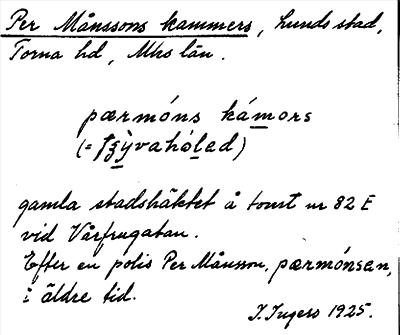 Per Månssons kammers, Lunds stad,
Torna hd, Mhs län.
pærmóns kámors
(= tʒỳvahóled)
gamla stadshäktet å tomt nr 82 E
vid Vårfrugatan.
Efter en polis Per Månsson, pærmónsən,
i äldre tid.
I. Ingers 1925.